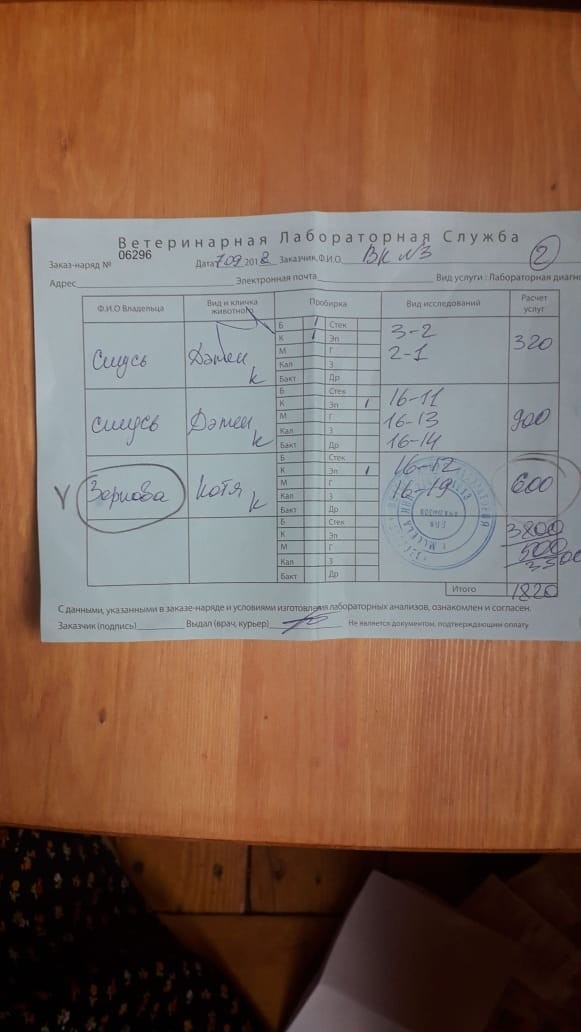 Ветеринарная Лабораторная Служба
Заказ-наряд № 06296 Дата 7.09 2018 Заказчик, Ф.И.О. ВК №3 2
Адрес Электронная почта Вид услуги: Лабораторная диагно
Ф.И.О Владельца Вид и кличка животного Пробирка Вид исследований Расчет услуг
Б Стек 3-2
К Эп 2-1 320
М Г
Кал З К
Бакт Др
Б Стек 16-11
К Эп 16-13
М Г 16-14 900
Кал З К
Бакт Др
Б Стек 16-12
К Эп 16-19
Зернова Котя К М Г 600
Кал З
Бакт Др
Б Стек 3800
К Эп 500
М Г
Кал З
Бакт Др
Итого 1820
С данными, указанными в заказе-наряде и условиями изготовления лабораторных анализов, ознакомлен и согласен.
Заказчик (подпись) Выдал (врач, курьер) Не является документом, подтверждающим оплату